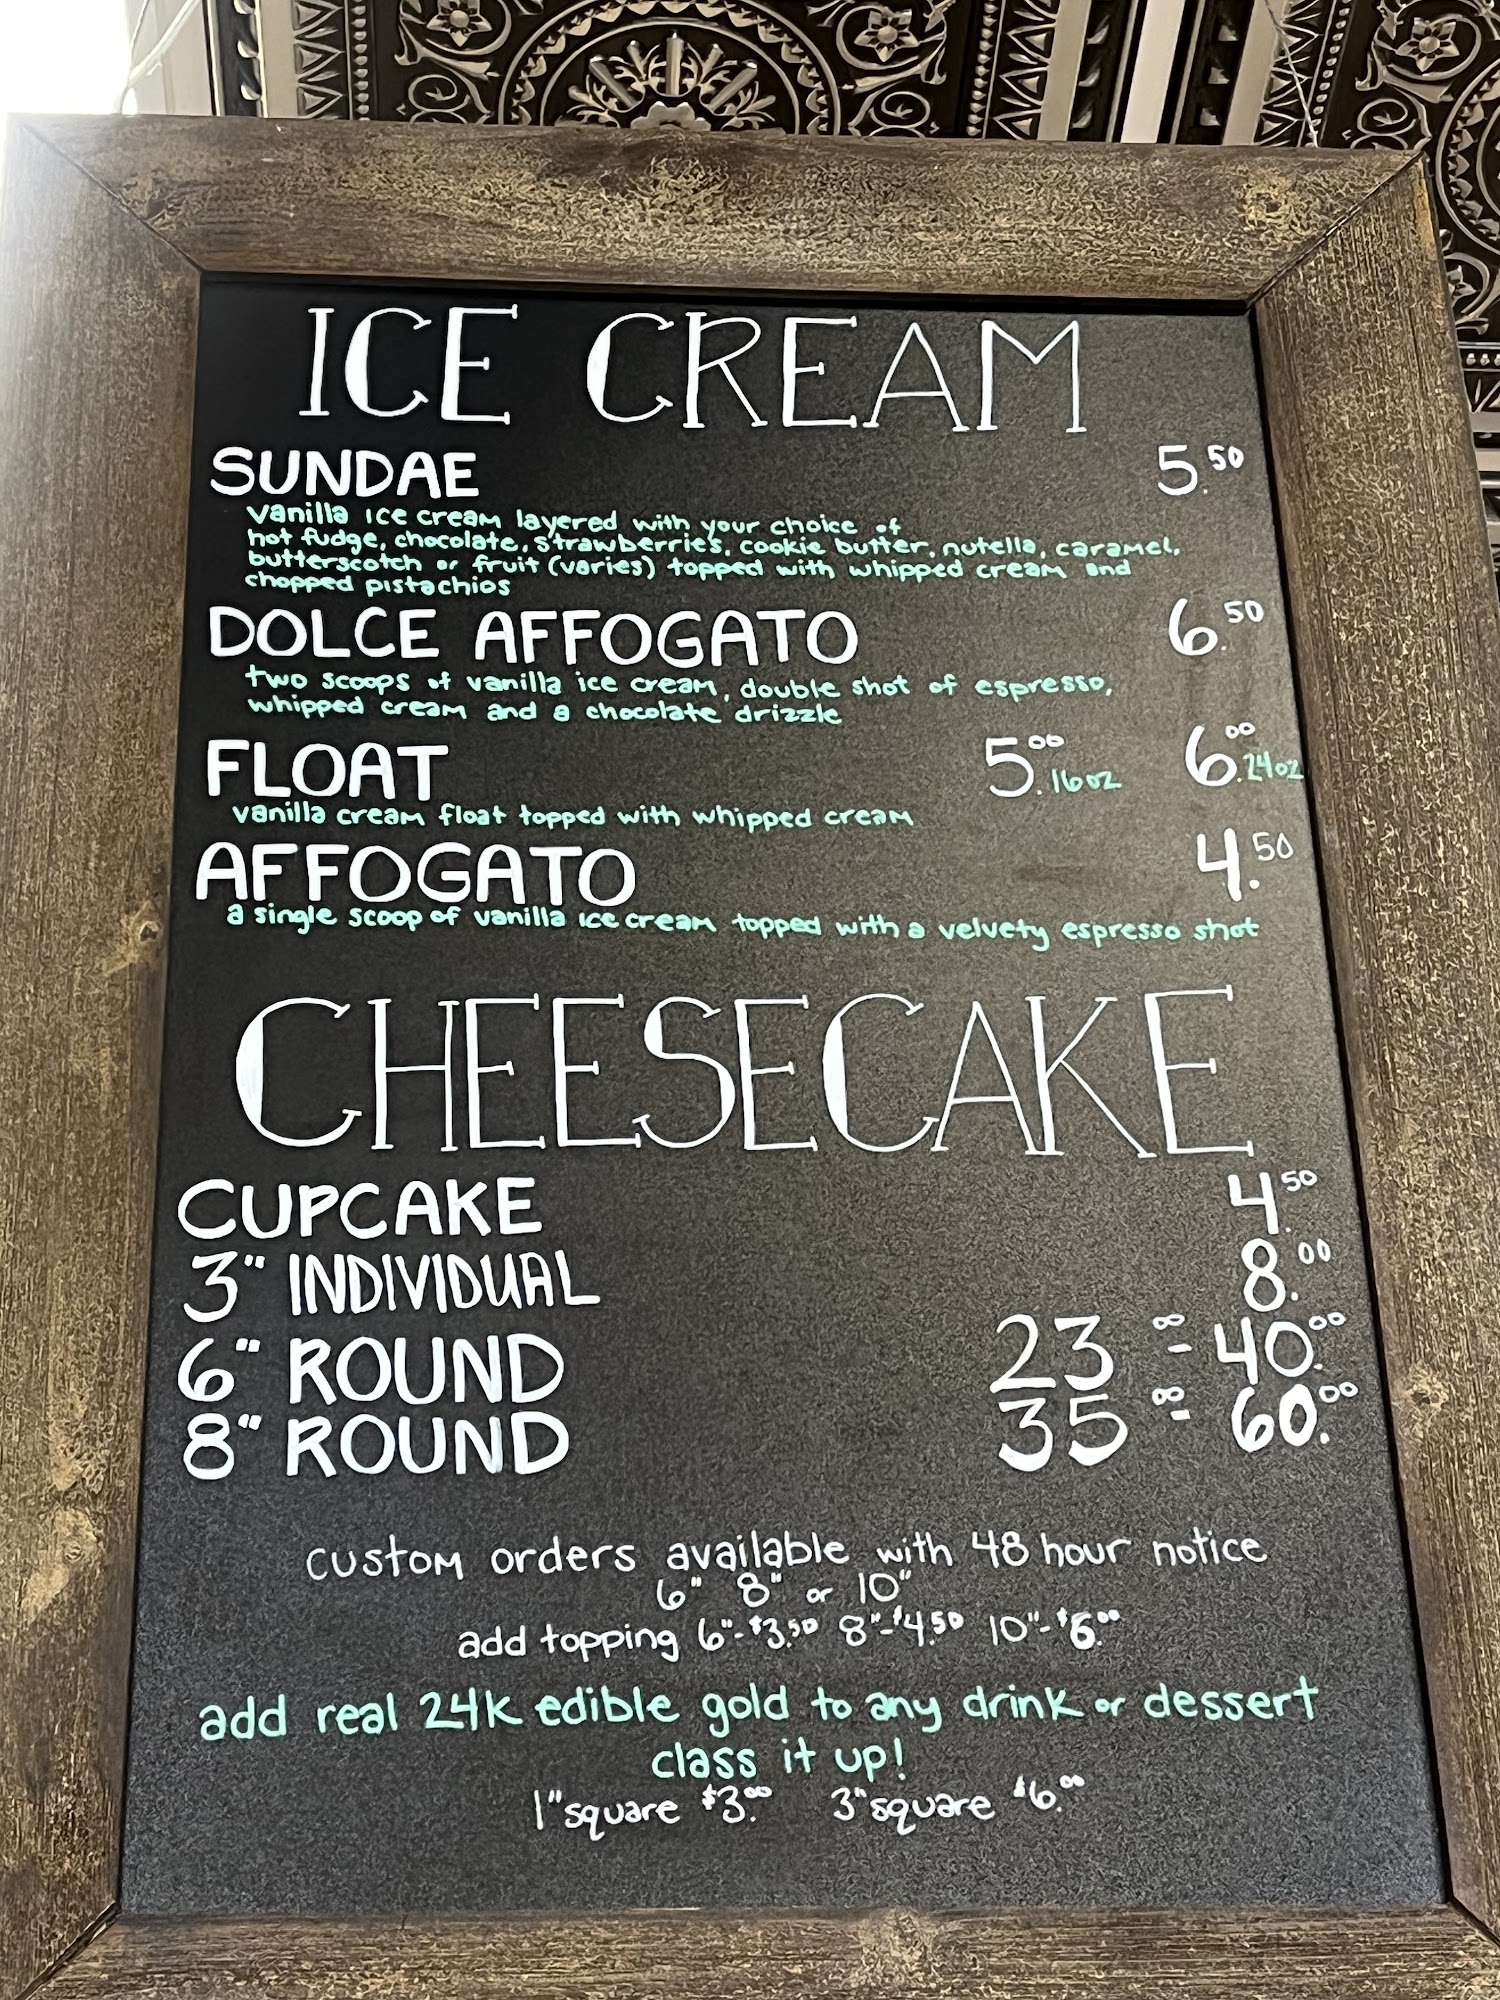 ICE CREAM
SUNDAE 5.50
vanilla ice cream layered with your choice of
hot fudge, chocolate, strawberries, cookie butter, nutella, caramel,
butterscotch or fruit (varies) topped with whipped cream and
chopped pistachios
DOLCE AFFOGATO 6.50
two scoops of vanilla ice cream, double shot of espresso,
whipped cream and a chocolate drizzle
FLOAT 5.00 16oz 6.00 24oz
vanilla cream float topped with whipped cream
AFFOGATO 4.50
a single scoop of vanilla ice cream topped with a velvety espresso shot
CHEESECAKE
CUPCAKE 4.50
3" INDIVIDUAL 8.00
6" ROUND 23 00 - 40.00
8" ROUND 35 00 - 60.00
custom orders available with 48 hour notice
6" 8" or 10"
add topping 6"-$3.50 8"-$4.50 10"-$6.00
add real 24K edible gold to any drink or dessert
class it up!
1" square $3.00 3" square $6.00